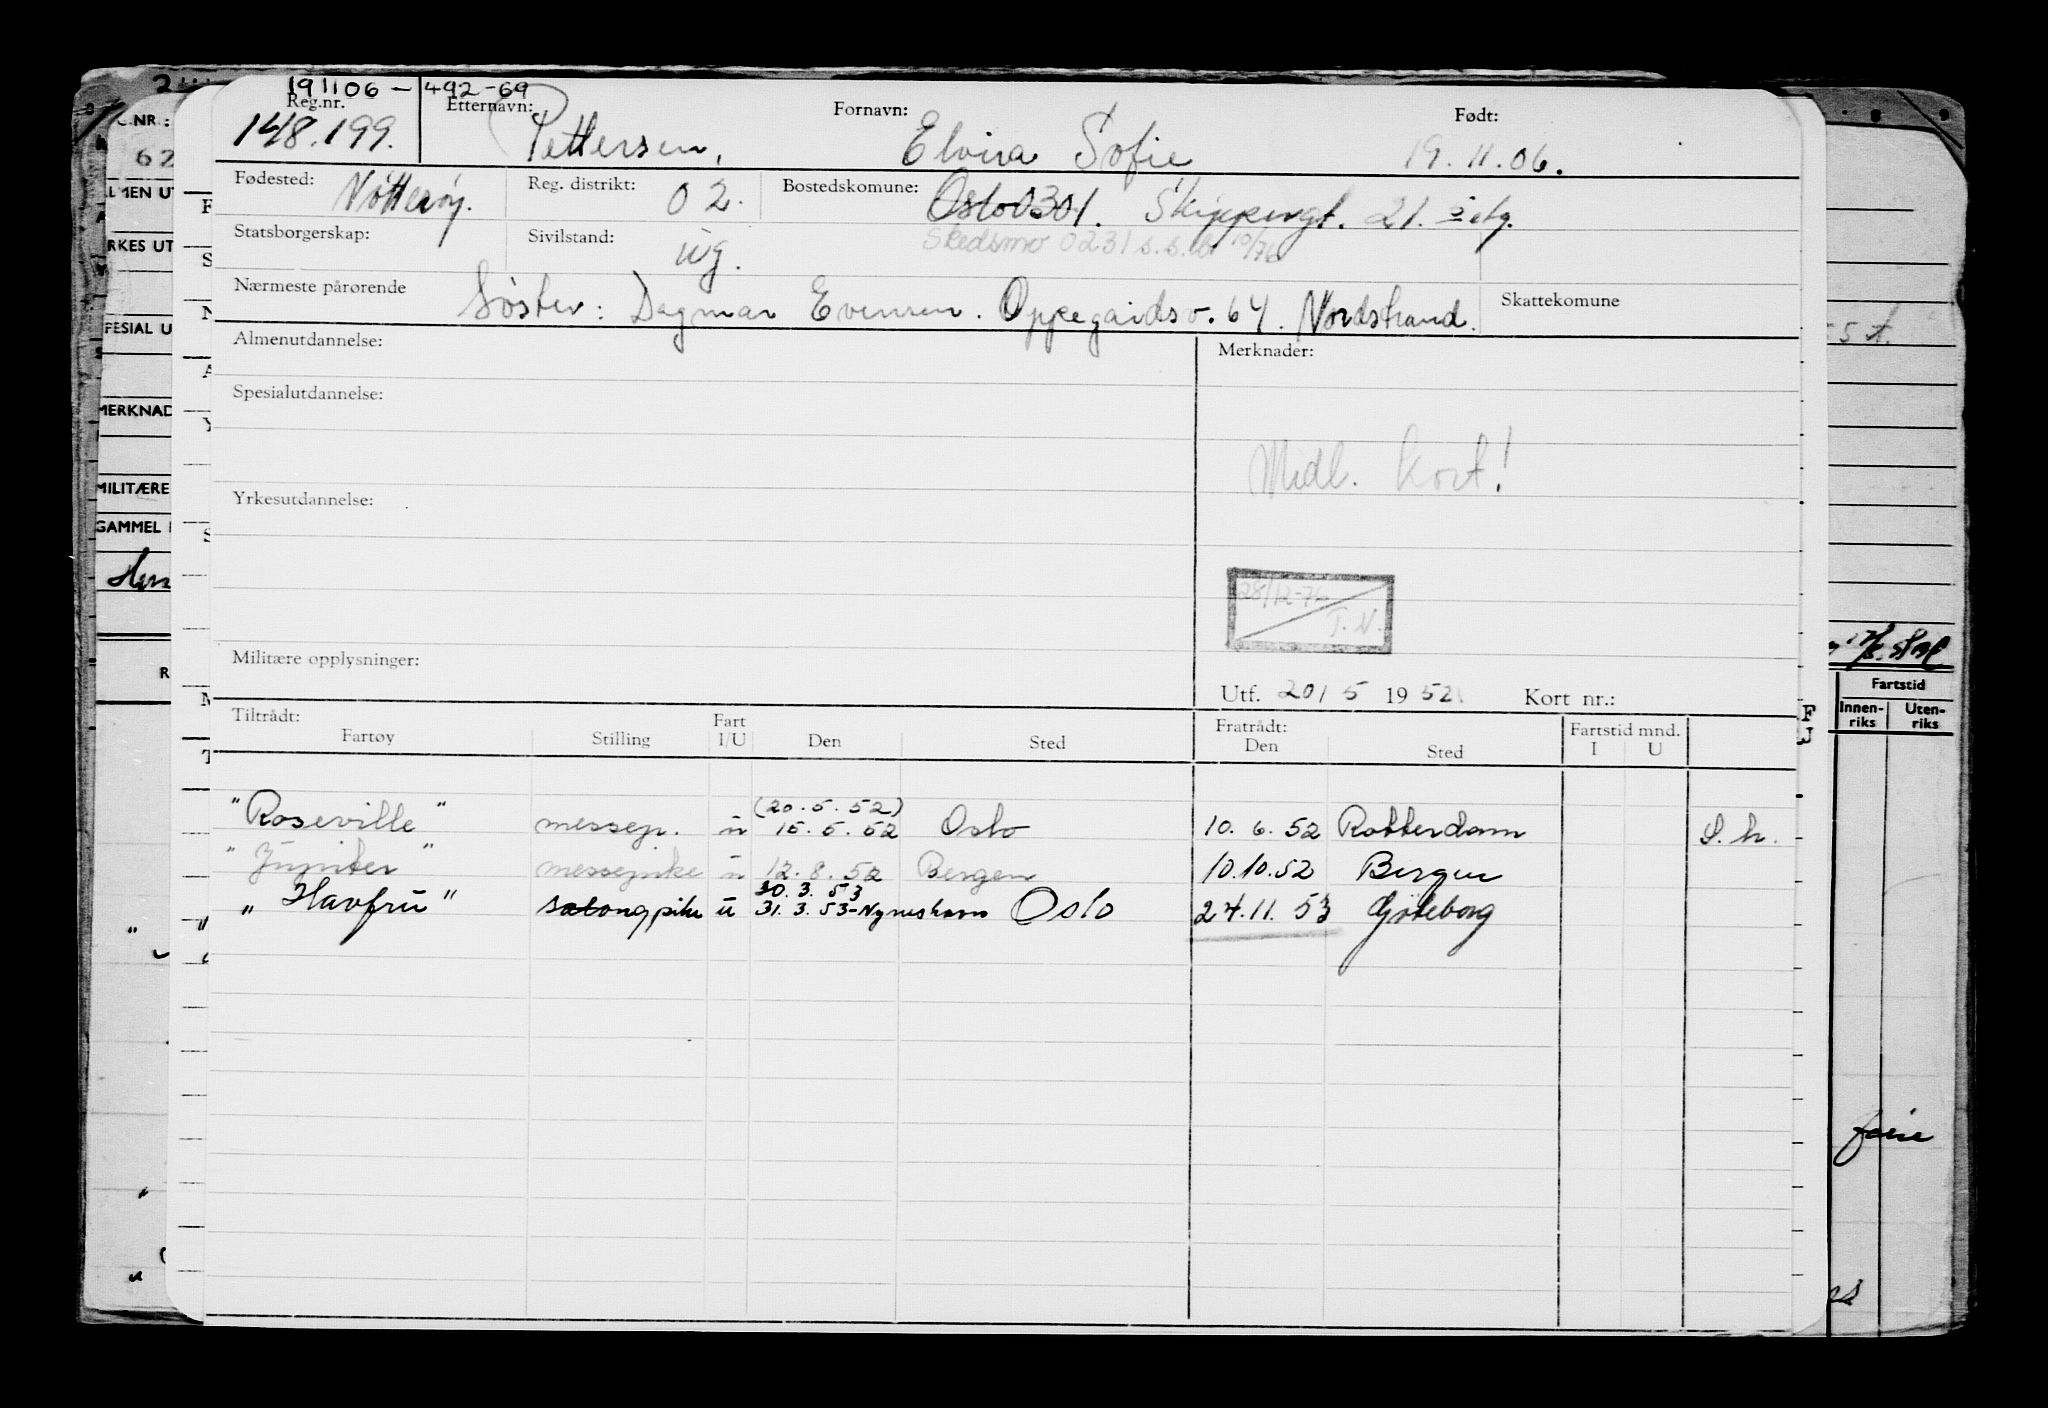 191106 - 492-69
Reg.nr. Etternavn: Fornavn: Født:
148.199. Pettersen, Elvira Sofie 19.11.06.
Fødested: Nøtterøy. Reg. distrikt: 02. Bostedskomune: Oslo 0301. Skippergt. 21. etg.
Statsborgerskap: Sivilstand: ug. Skedsmo 0231 10/76
Nærmeste pårørende Søster: Dagmar Evensen. Oppegårdsv. 64. Nordstrand. Skattekomune
Almenutdannelse: Merknader:
Spesialutdannelse:
Midl. kort!
Yrkesutdannelse:
28/12-76
T.N.
Militære opplysninger:
Utf. 20/5 1952. Kort nr.:
Tiltrådt: Fart Fratrådt: Fartstid mnd.
Fartøy Stilling I/U Den Sted Den Sted I U
(20.5.52)
"Roseville" messep. u 15.5.52 Oslo 10.6.52 Rotterdam S.h.
"Jupiter" messepike u 12.8.52 Bergen 10.10.52 Bergen
30.3.53
"Havfru" salongpike u 31.3.53-Nyneshavn Oslo 24.11.53 Göteborg
C.NR.:
62
LMEN UT
RKES UT
PESIAL U
MERKNAD
MILITÆRE
GAMMEL
Fartstid
Innen-riks Uten-riks